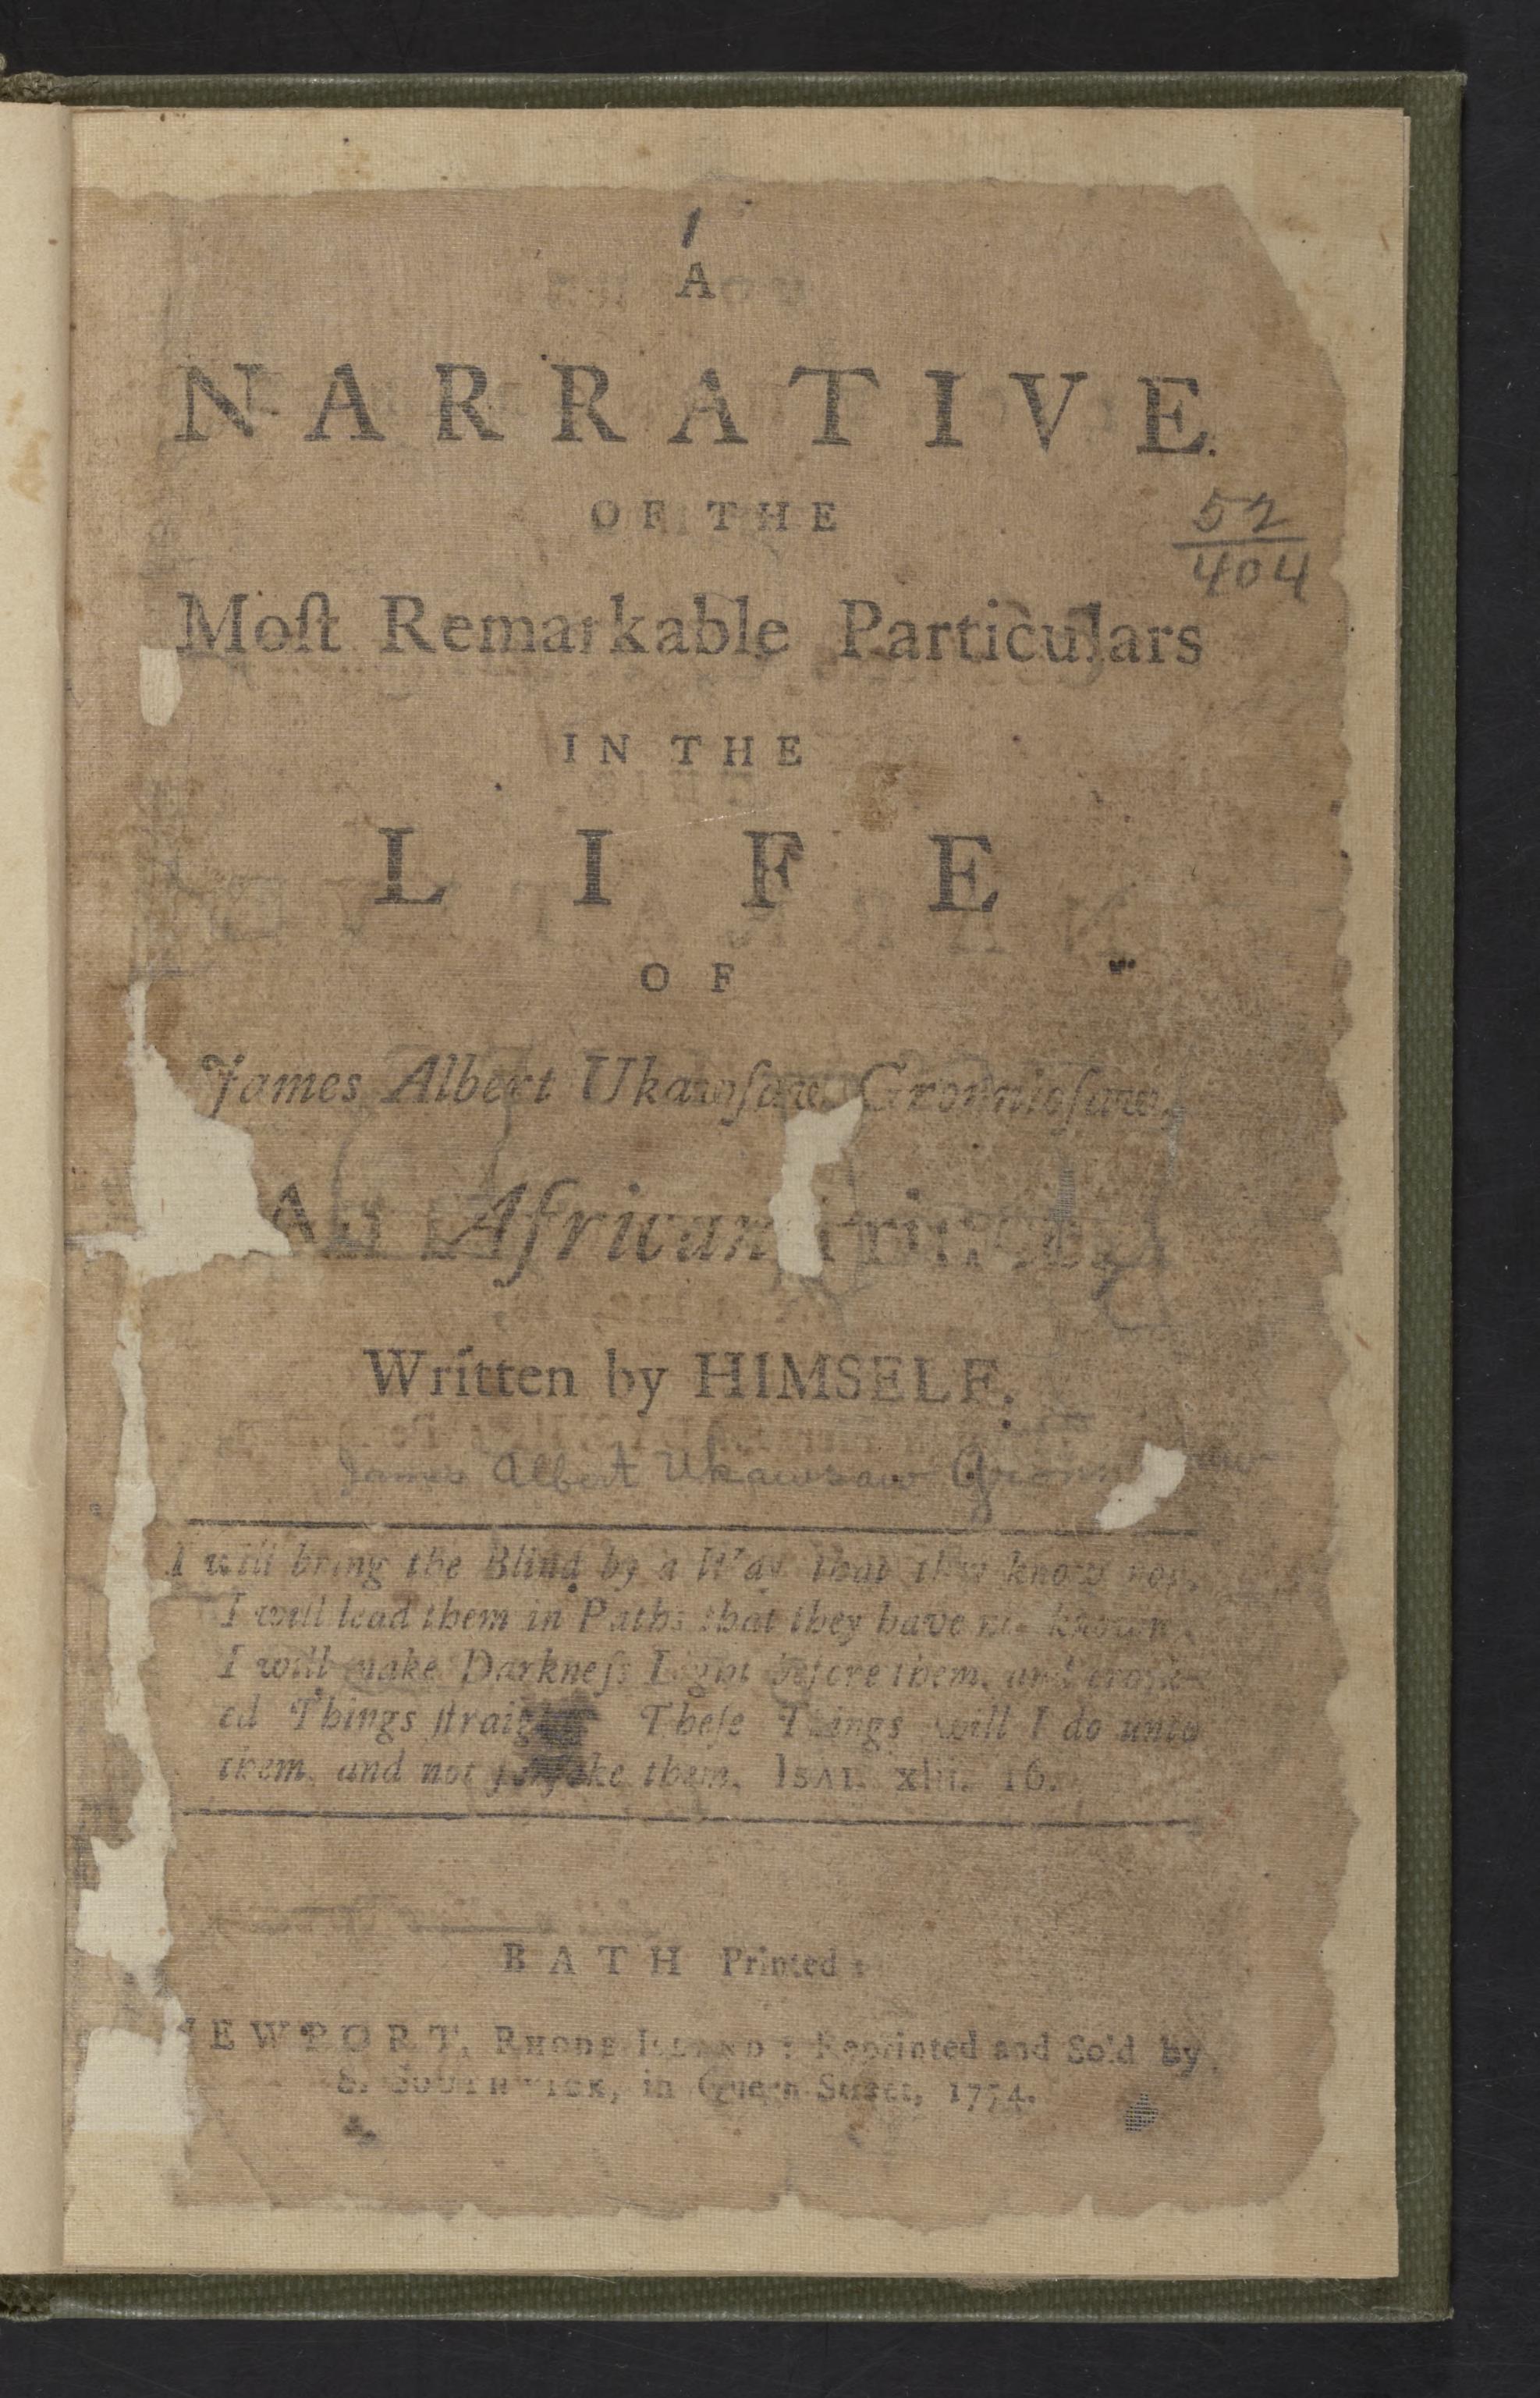 A
NARRATIVE
OF THE
Moſt Remarkable Particulars
IN THE
LIFE
OF
James Albert Ukawſaw Gronnioſaw,
An African Prince,
Written by HIMSELF.
James Albert Ukawsaw Gronn aw
I will bring the Blind by a Way that they know not,
I will lead them in Paths that they have not known
I will make Darkneſs Light before them, and crook-
ed Things ſtraight Theſe Things will I do unto
them, and not forſake them. ISAI. xlii. 16.
BATH Printed:
NEWPORT, RHODE-ISLAND: Reprinted and Sold by
S. SOUTHWICK, in Queen-Street, 1774.
52
404